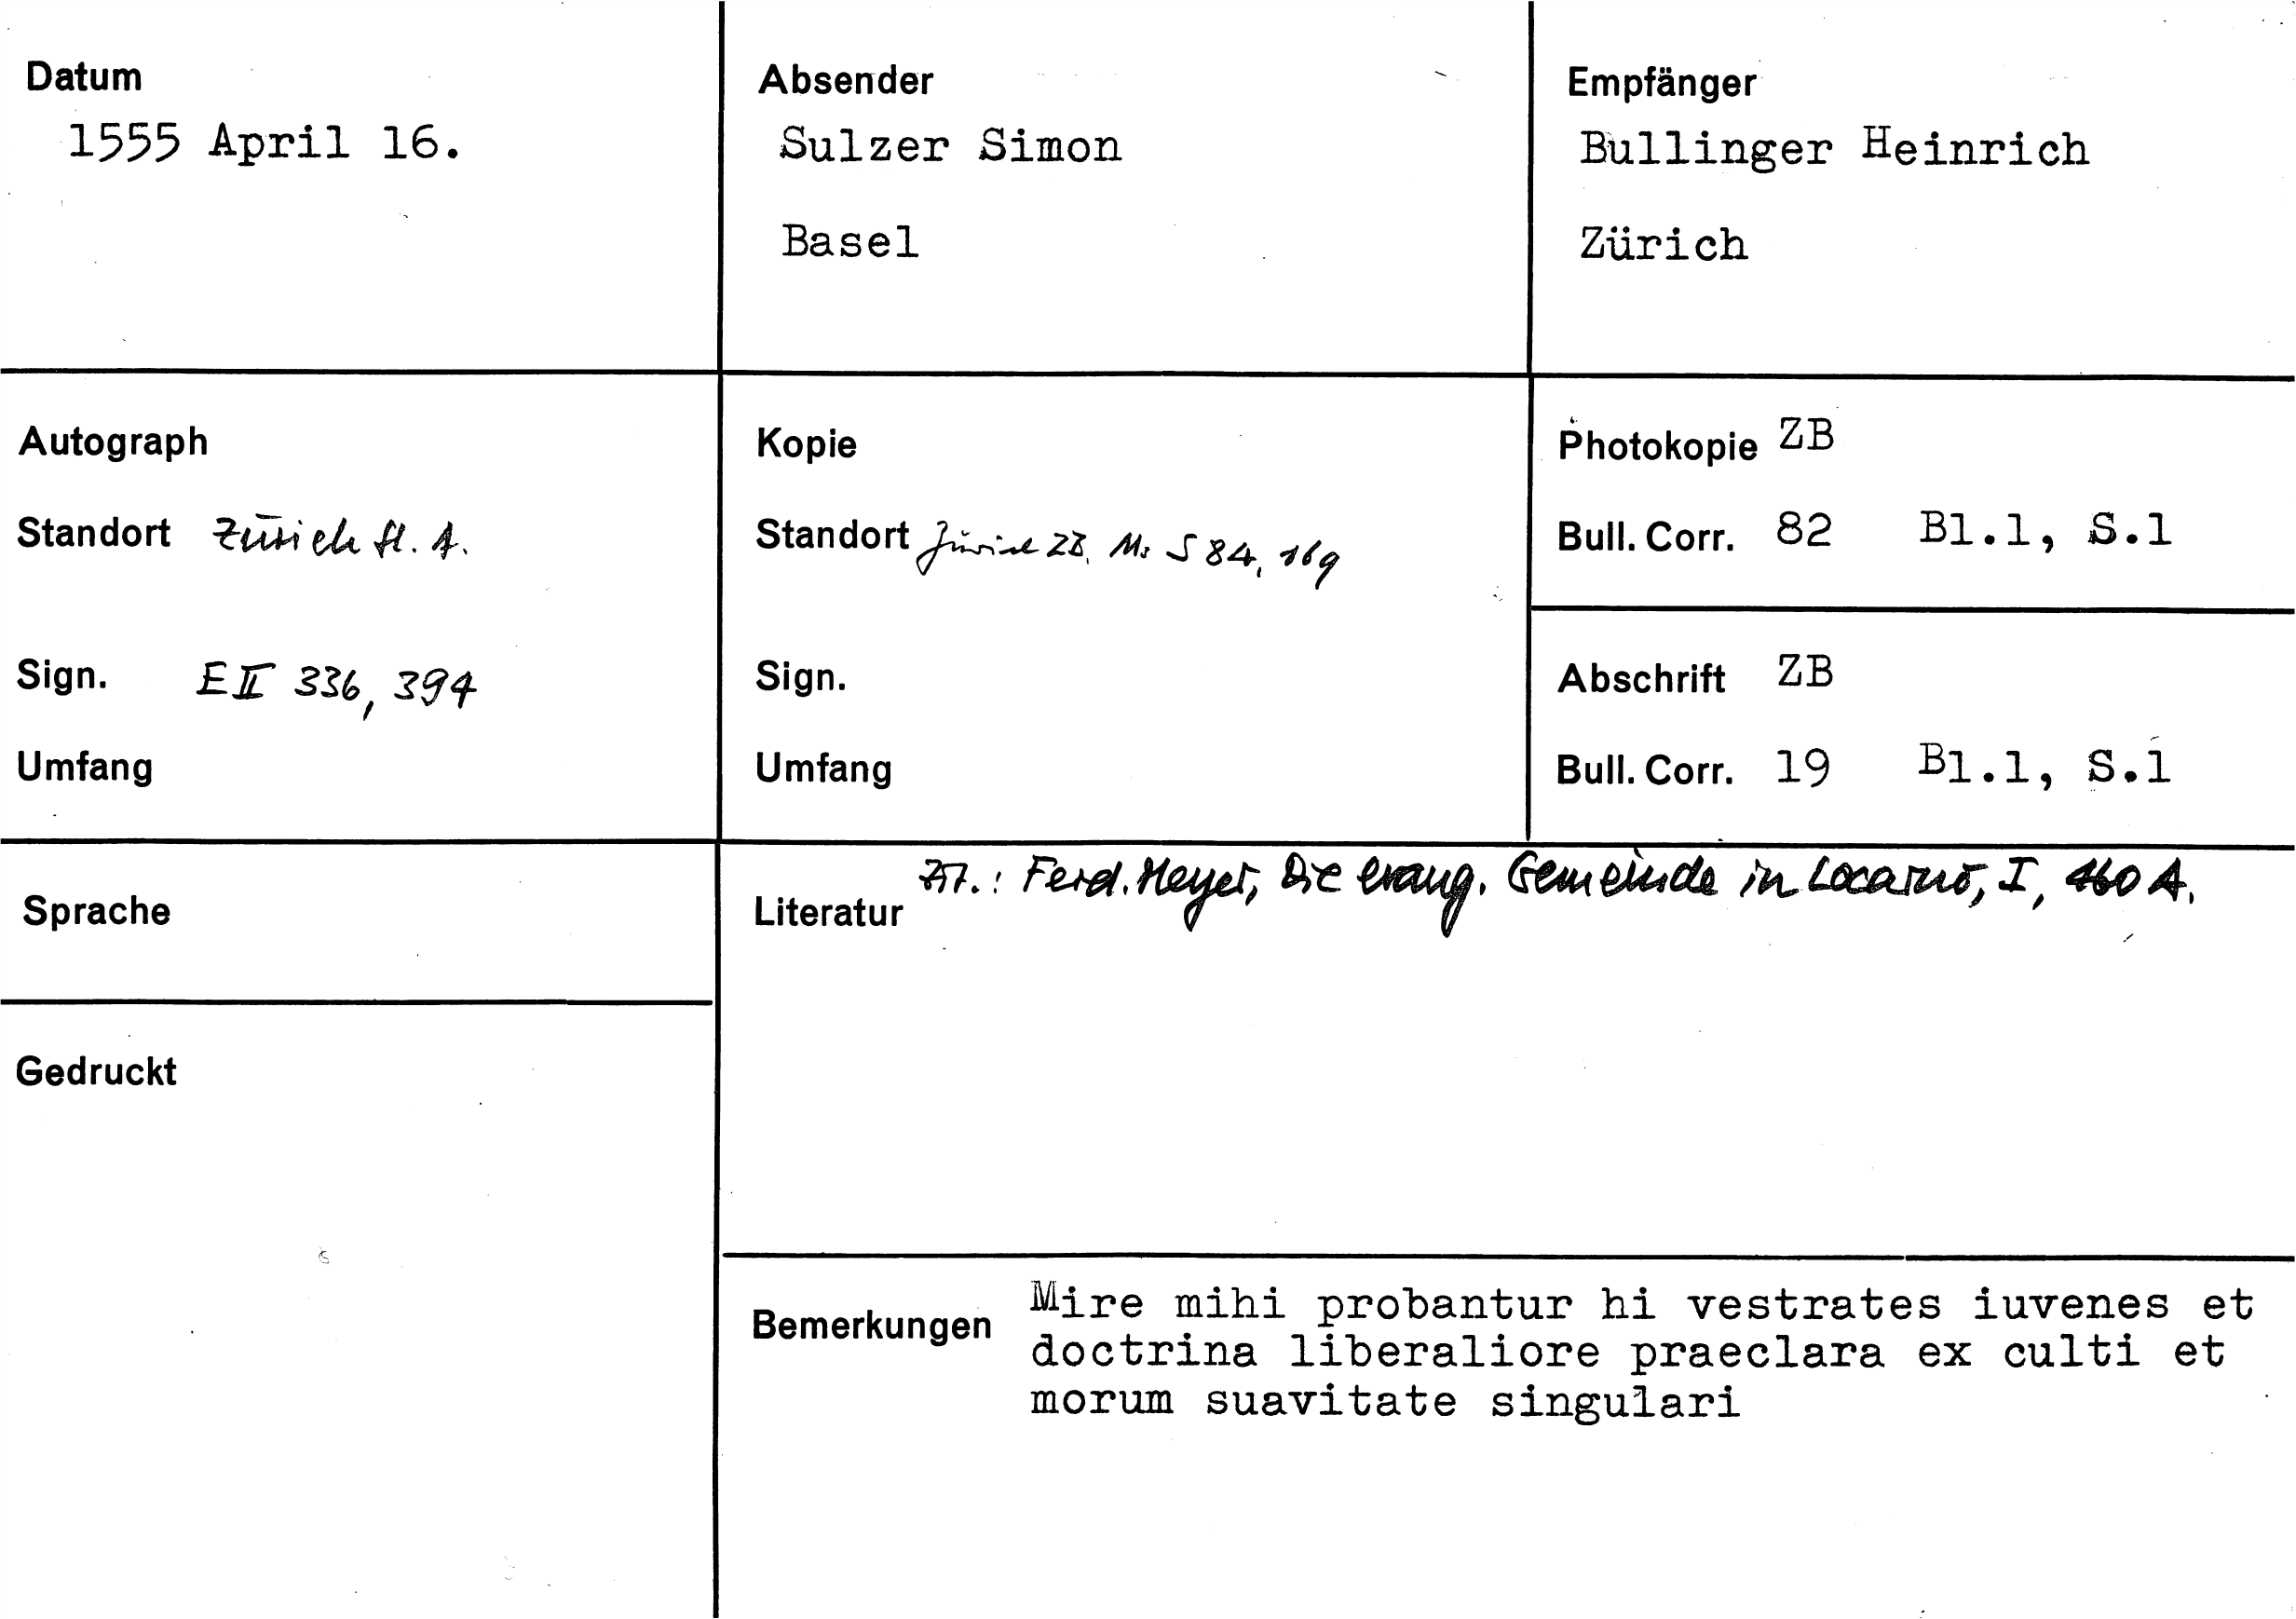 Datum
1555 April 16.
Absender
Sulzer Simon
Basel
Empfänger
Bullinger Heinrich
Zürich
Autograph
Standort Zürich St. A.
Sign. E II 336, 394
Umfang
Kopie
Standort Zürich ZB, Ms S 84, 169
Sign.
Umfang
Photokopie ZB
Bull. Corr. 82 Bl.1, S.1
Abschrift ZB
Bull. Corr. 19 Bl.1, S.1
Sprache
Gedruckt
Literatur Zit.: Ferd. Meyer, Die evang. Gemeinde in Locarno, I, 460 A.
Bemerkungen Mire mihi probantur hi vestrates iuvenes et
doctrina liberaliore praeclara ex culti et
morum suavitate singulari